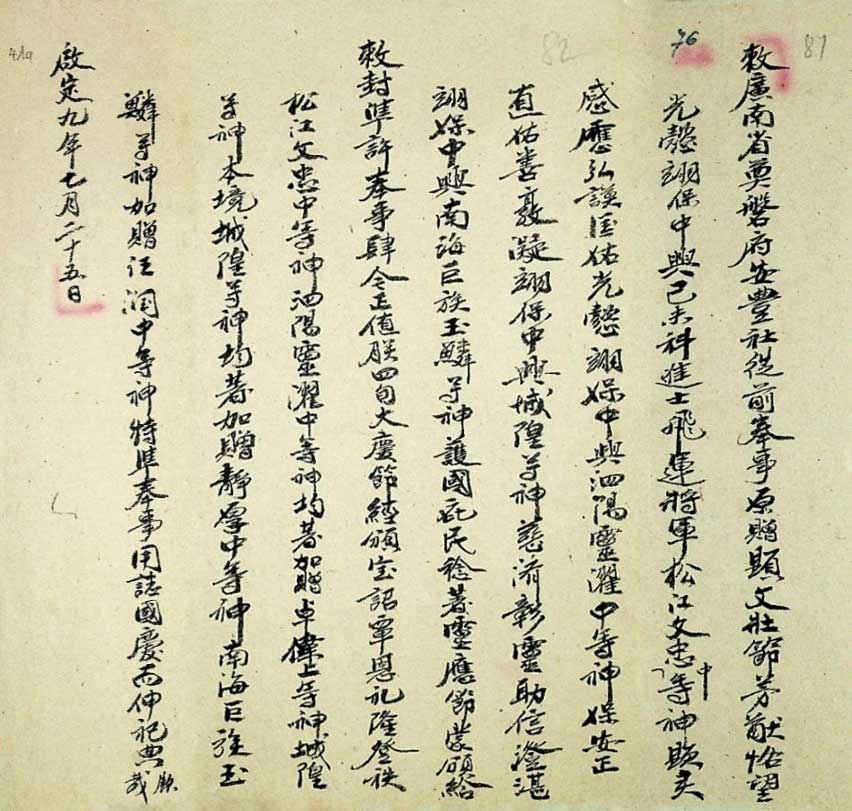 81
76
82
41a
敕廣南省奠磐府安豊社從前奉事原贈顯文壯節芳猷恰望
光懿翊保中興己未科進士飛運將軍松江文忠中等神顯灵
感應弘謨匡祐光懿翊保中興泗陽靈濯中等神保安正
直佑善敦凝翊保中興城隍尊神慈済彰靈助信澄湛
翊保中興南海巨族玉鱗尊神護國庇民稔著靈應節蒙頒給
敕封準許奉事肆今正值朕四旬大慶節經頒宝詔覃恩礼隆登秩
松江文忠中等神泗陽靈濯中等神均著加贈卓偉上等神城隍
尊神本境城隍尊神均著加贈靜厚中等神南海巨族玉
鱗尊神加贈汪潤中等神特準奉事用誌國慶而伸祀典欽哉
啟定九年七月二十五日